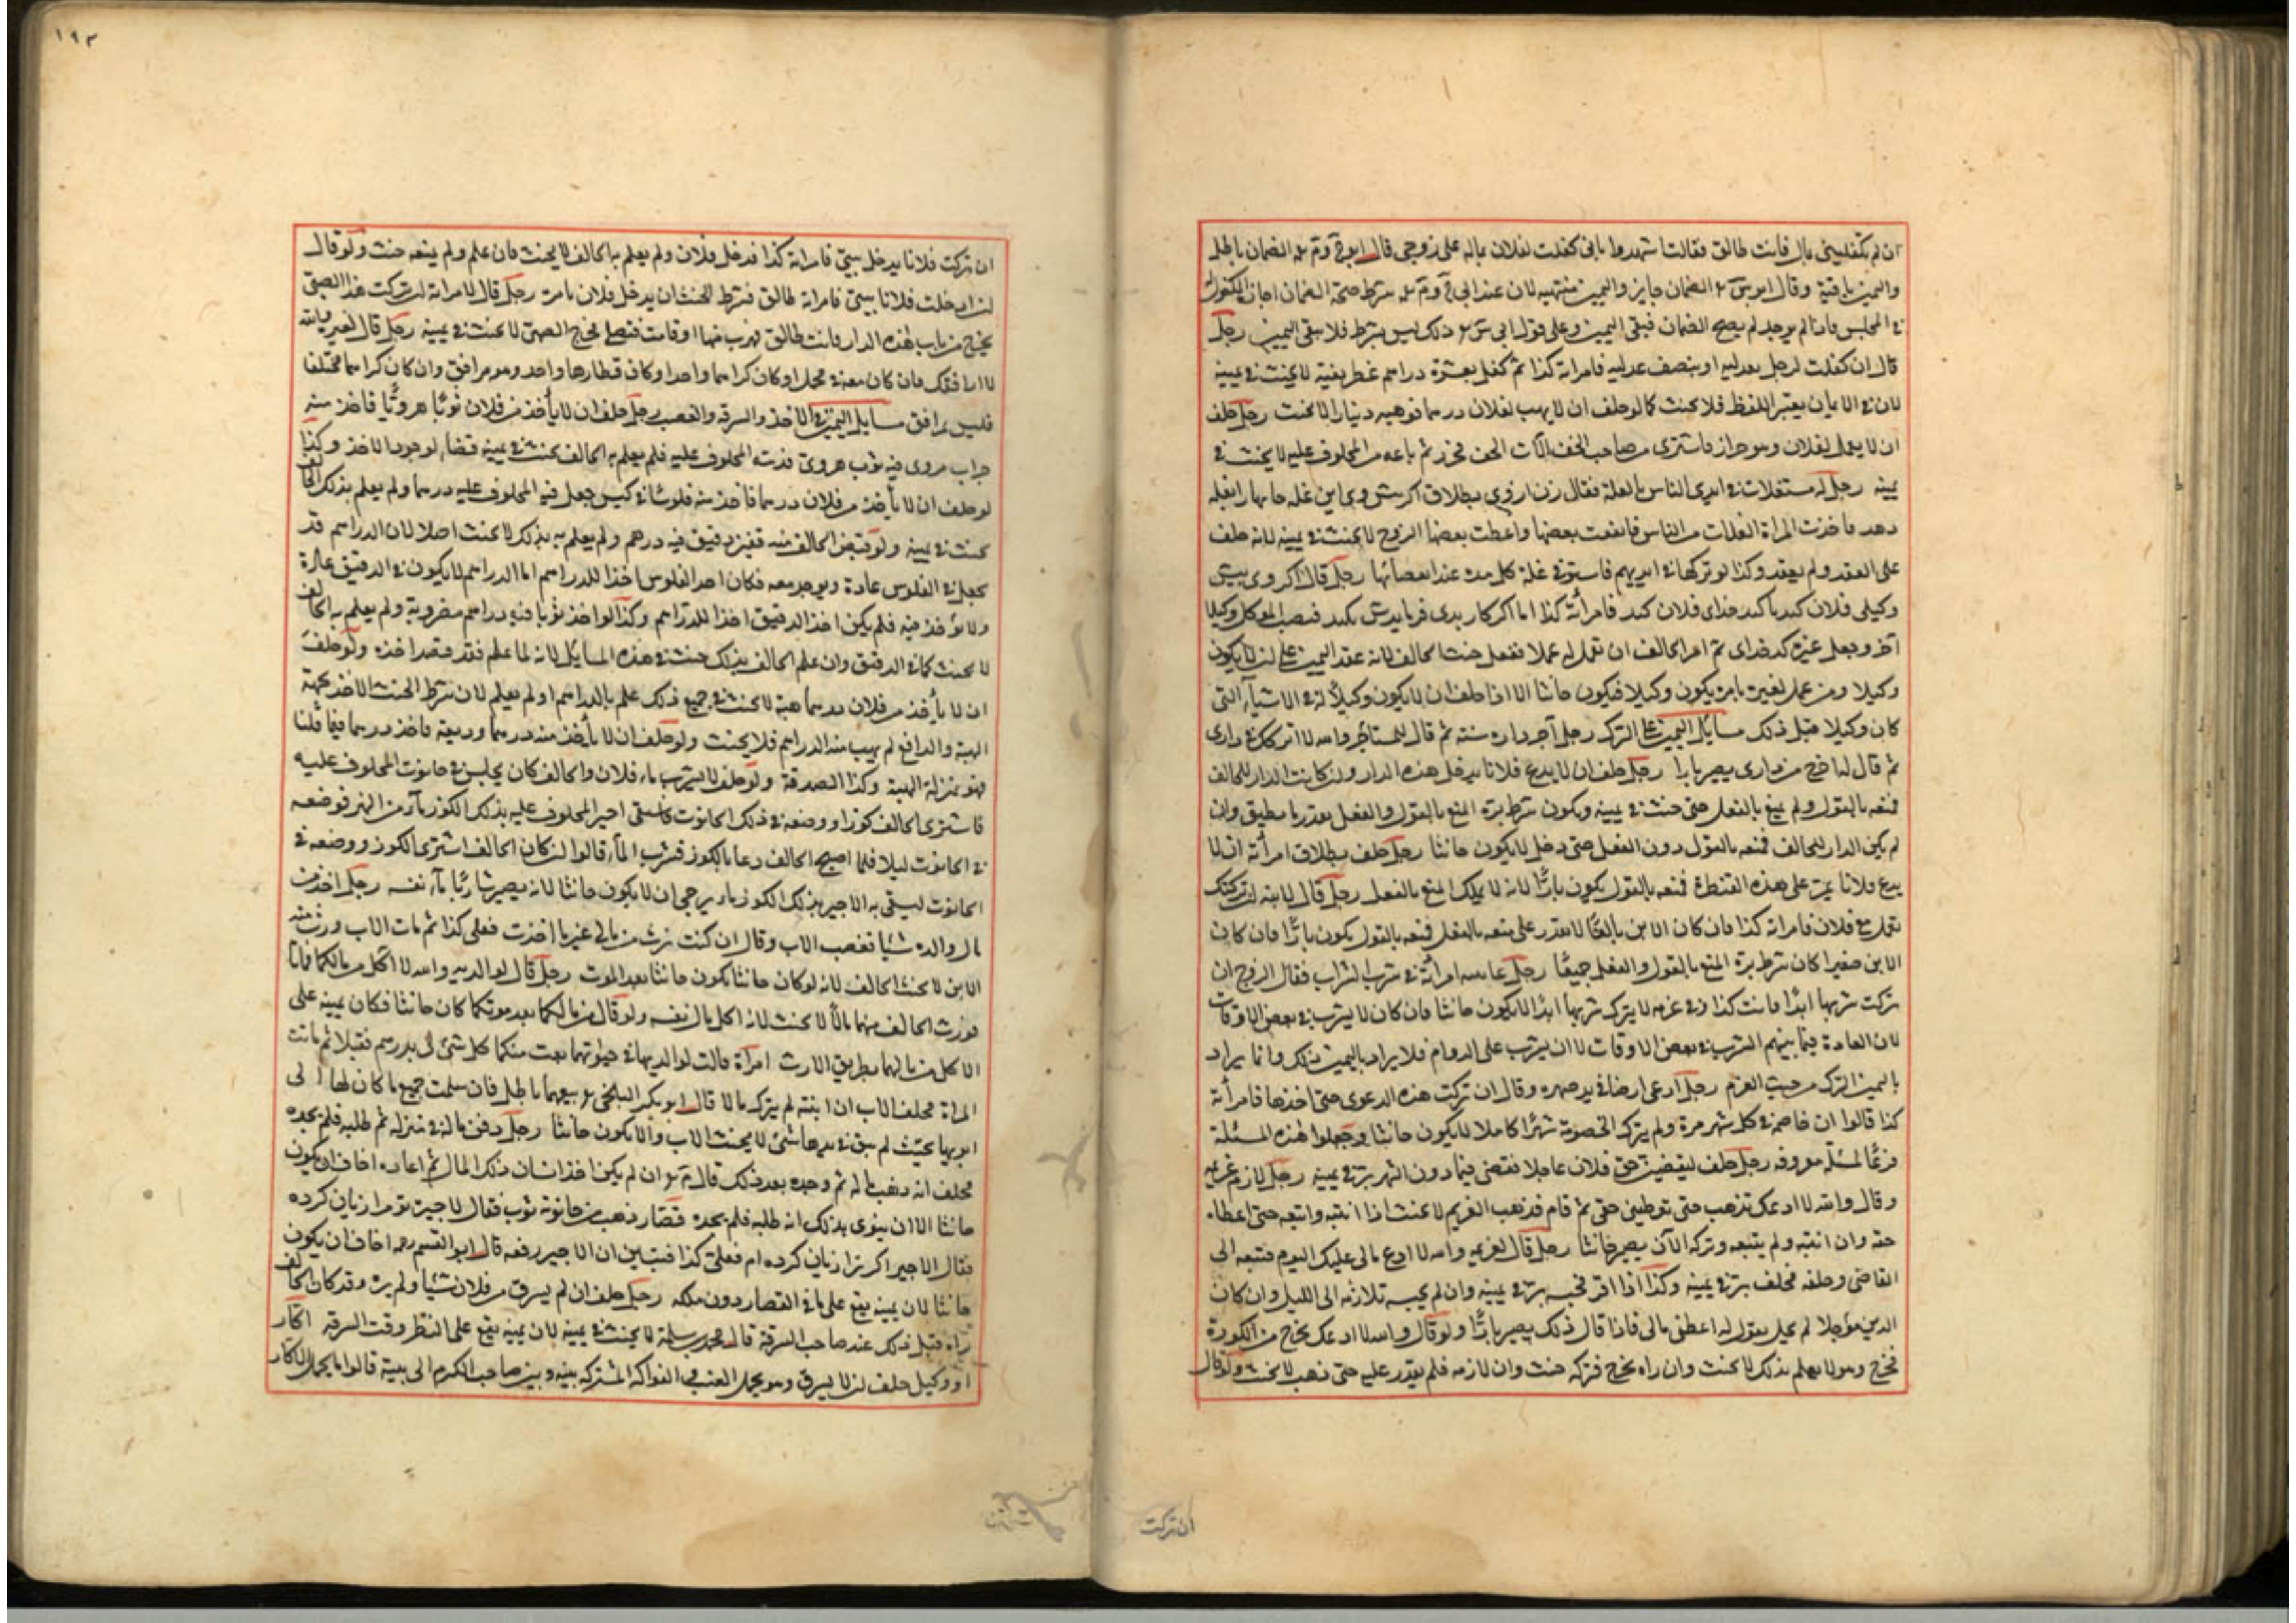 ان لم تكفليني بمال فانت طالق فقالت اشهدوا باني كفلت لفلان بماله على زوجي قال الضمان باطل
واليمين باقية وقال الضمان جايز واليمين منتهيه لان عند شرط صحة الضمان اجازة المكفول له
في المجلس فاذا لم يوجد لم يصح الضمان فبقى اليمين وعلى قول ابي ذلك ليس بشرط فلا يبقى اليمين رجل
قال ان كفلت لرجل بعدليه او بنصف عدليه فامراته كذا ثم كفل بعشرة دراهم غطريفية لا يحنث في يمينه
لان في الايمان يعتبر اللفظ فلا يحنث كما لو حلف ان لا يهب لفلان درهما فوهبه دينارا لا يحنث رجل حلف
ان لا يعمل لفلان وهو خراز فاشترى من صاحب الخف الات الخف فخرز ثم باعه من المحلوف عليه لا يحنث في
يمينه رجل له مستغلات في ايدي الناس بالغلة فقال زن ازوى بطلاق اكر وى اين غله
دهد فاخذت المراة الغلات من الناس فانفقت بعضها واعطت بعضها الزوج لا يحنث في يمينه لانه حلف
على العقد ولم يعقد وكذا لو تركها في ايديهم فاستوفى غلة كل مدة عند انقضائها رجل قال اكر وى بيش
وكيلى فلان كند يا كدخداى فلان كند فامرأته كذا اما اكر كار بدى فرمايدش بكند فنصب الموكل وكيلا
آخر وجعل غيره كدخداى ثم امر الحالف ان تعمل له عملا ففعل حنث الحالف لانه عقد اليمين على ان لا يكون
وكيلا ومن عمل لغيره بامره يكون وكيلا فيكون حانثا الا اذا حلف ان لا يكون وكيلاً له في الاشياء التي
كان وكيلا قبل ذلك مسائل اليمين على الترك رجل آجر داره سنة ثم قال للمستأجر والله لا اتركك في دارى
ثم قال له اخرج من دارى يصير بارا رجل حلف ان لا يدع فلانا يدخل هذه الدار وان كانت الدار للحالف
فمنعه بالقول ولم يمنع بالفعل حتى حنث في يمينه ويكون شرط بره المنع بالقول والفعل بقدر ما يطيق وان
لم يكن الدار للحالف فمنعه بالقول دون الفعل حتى دخل لا يكون حانثا رجل حلف بطلاق امرأته ان لا
يدع فلانا يمر على هذه القنطرة فمنعه بالقول يكون بارًّا لانه لا يملك المنع بالفعل رجل قال لابنه ان تركتك
تعمل مع فلان فامراته كذا فان كان الابن بالغًا لا يقدر على منعه بالفعل فمنعه بالقول يكون بارًّا فان كان
الابن صغيرا كان شرط بره المنع بالقول والفعل جميعًا رجل عاتبته امرأته في شرب الشراب فقال الزوج ان
تركت شربها ابدًا فانت كذا وفي عزمه لا يترك شربها ابدًا لا يكون حانثا فان كان لا يشرب في بعض الاوقات
لان العادة فيما بينهم الشرب في بعض الاوقات لا ان يشرب على الدوام فلا يراد باليمين ذلك وانما يراد
باليمين الترك من حيث العزم رجل ادعى ارضا في يد صهره وقال ان تركت هذه الدعوى حتى اخذها فامرأته
كذا قالوا ان خاصمه في كل شهر مرة ولم يترك الخصومة شهرًا كاملا لا يكون حانثا وجعلوا لهذه المسئلة
فرعًا لمسئلة معروفه رجل حلف ليقضين حق فلان عاجلا فقضى فيما دون الشهر بر في يمينه رجل لازم غريمه
وقال والله لا ادعك تذهب حتى تعطيني حقي ثم قام فذهب الغريم لا يحنث اذا انتبه واتبعه حتى اعطاه
حقه وان انتبه ولم يتبعه وتركه الآن يصير حانثا رجل قال لغريمه والله لا ادع مالى عليك اليوم فتبعه الى
القاضي وحلفه فحلف بر في يمينه وكذا اذا اقر فحبسه بر في يمينه وان لم يحبسه تلازمه الى الليل وان كان
الدين مؤجلا لم يحل يقول له اعطني مالى فاذا قال ذلك يصير بارًّا ولو قال والله لا ادعك تخرج من الكورة
فخرج وهو لا يعلم بذلك لا يحنث وان راه يخرج فتركه حنث وان لازمه فلم يقدر عليه حتى ذهب لا يحنث ولو قال
ان تركت
١٩٣
ان تركت فلانا يدخل بيتي فامراته كذا فدخل فلان ولم يعلم به الحالف لا يحنث فان علم ولم يمنعه حنث ولو قال
ان ادخلت فلانا بيتي فامراته طالق فشرط الحنث ان يدخل فلان بامره رجل قال لامراته ان تركت هذا الصبي
يخرج من باب هذه الدار فانت طالق فهرب منها او قامت فتصلى فخرج الصبي لا يحنث في يمينه رجل قال لغيره والله
لا ارافقك فان كان معه في محمل او كان كراهما واحدا وكان قطارها واحد وهو مرافق وان كان كراهما مختلفا
فليس بمرافق مسايل اليمين في الاخذ والسرقه والغصب رجل حلف ان لا يأخذ من فلان ثوبًا هرويًّا فاخذ منه
جراب مروى فيه ثوب هروى المحلوف عليه فلم يعلم به الحالف يحنث في يمينه قضاء لوجود الاخذ وكذا
لو حلف ان لا يأخذ من فلان درهما فاخذ منه فلوسا في كيس جعل فيه المحلوف عليه درهما ولم يعلم بذلك الحالف
يحنث في يمينه ولو قبض الحالف منه قفيز دقيق فيه درهم ولم يعلم به بذلك لا يحنث اصلا لان الدراهم قد
تجعل في الفلوس عادة ويوجد معه فكان احد الفلوس اخذا للدراهم اما الدراهم لا يكون في الدقيق عادة
ولا يؤخذ فيه فلم يكن اخذ الدقيق اخذا للدراهم وكذا لو اخذ ثوبا فيه دراهم مضروبة ولم يعلم به الحالف
لا يحنث كما في الدقيق وان علم الحالف بذلك حنث في هذه المسائل لانه لما علم فقد قصد اخذه ولو حلف
ان لا يأخذ من فلان درهما هبة لا يحنث في جميع ذلك علم بالدراهم او لم يعلم لان شرط الحنث الاخذ بجهة
الهبة والدافع لم يهب منه الدراهم فلا يحنث ولو حلف ان لا يأخذ منه درهما وديعة فاخذ درهما فيما قلنا
فهو بمنزلة الهبة وكذا الصدقة ولو حلف لا يشرب ماء فلان والحالف كان يجلس في حانوت المحلوف عليه
فاشترى الحالف كوزا ووضعه في ذلك الحانوت فاستقى اجير المحلوف عليه بذلك الكوز ماء من النهر فوضعه
في الحانوت ليلا فلما اصبح الحالف دعا بالكوز فشرب الماء قالوا ان كان الحالف اشترى الكوز ووضعه في
الحانوت ليسقى به الاجير بذلك الكوز ماء يرجى ان لا يكون حانثا لانه يصير شاربًا ماء نفسه رجل اخذ من
مال والده شيا فغضب الاب وقال ان كنت من مالي غير ما اخذت فعلى كذا ثم مات الاب ورث منه
الابن لا يحنث الحالف لانه لو كان حانثا يكون حانثا بعد الموت رجل قال لوالديه والله لا آكل من مالكما فماتا
فورث الحالف منهما مالًا لا يحنث لانه اكل مال نفسه ولو قال من مالكما بعد موتكما كان حانثا فكان يمينه على
الاكل من مالهما بطريق الارث امرأة قالت لوالديها في حيوتهما بعت منكما كل شئ لى بدرهم فقبلا ثم ماتت
المراة فحلف الاب ان ابنته لم يترك مالا قال ابو بكر البلخي بيعهما باطل فان سلمت جميع ما كان لها الى
ابويها بحيث لم يبق في يدها شئ لا يحنث الاب والا يكون حانثا رجل دفن ماله في منزله ثم طلبه فلم يجده
فحلف انه ذهب ماله ثم وجده بعد ذلك قال ان لم يكن اخذ انسان ذلك المال ثم اعاده اخاف ان يكون
حانثا الا ان ينوى بذلك انه طلبه فلم يجده قصّار ذهب من حانوته ثوب فقال لاجيره تو مرا زيان كرده
فقال الاجير اكر ترا زيان كرده ام فعلى كذا فتبين ان الاجير رفعه قال ابو القسم رحمه اخاف ان يكون
حانثا لان يمينه يقع على ما في القصار دون ملكه رجل حلف ان لم يسرق من فلان شيا ولم يره وقد كان الحالف
راه قبل ذلك عند صاحب السرقة قال محمد بن سلمة لا يحنث في يمينه لان يمينه يقع على النظر وقت السرقة اكار
او وكيل حلف ان لا يسرق وهو يحمل العنب في الفواكه المشتركه بينه وبين صاحب الكرم الى بيته قالوا ما يحمل الاكار